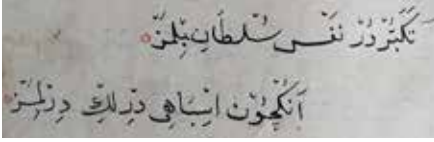 تَكَبُّرْدُرْ نَفَسْ سُلْطَانِ بِلْمَزْ
اَنُكْچُونْ اِسْبَاهِى دِرْلِكْ دِرِلْمَزْ